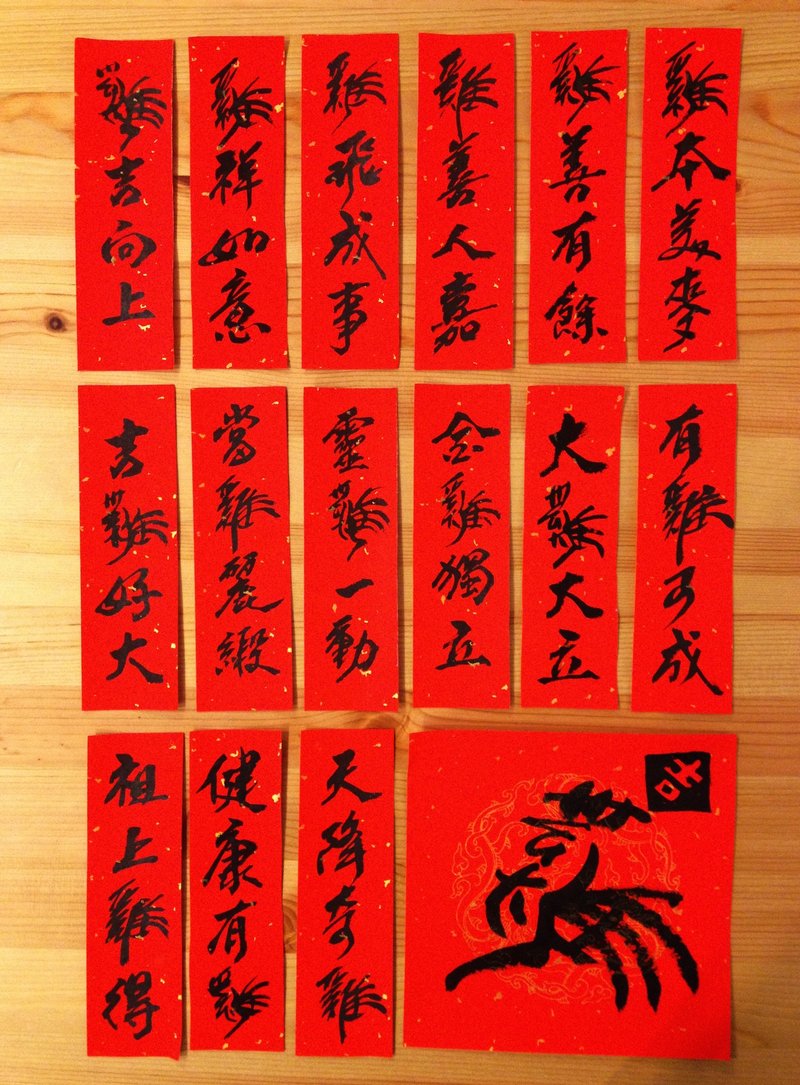 雞本美麥
雞善有餘
雞善人嘉
雞飛成事
雞祥如意
雞吉向上
有雞可成
大雞大立
金雞獨立
靈雞一動
當雞麗緞
吉雞好大
天降奇雞
健康有雞
祖上雞得